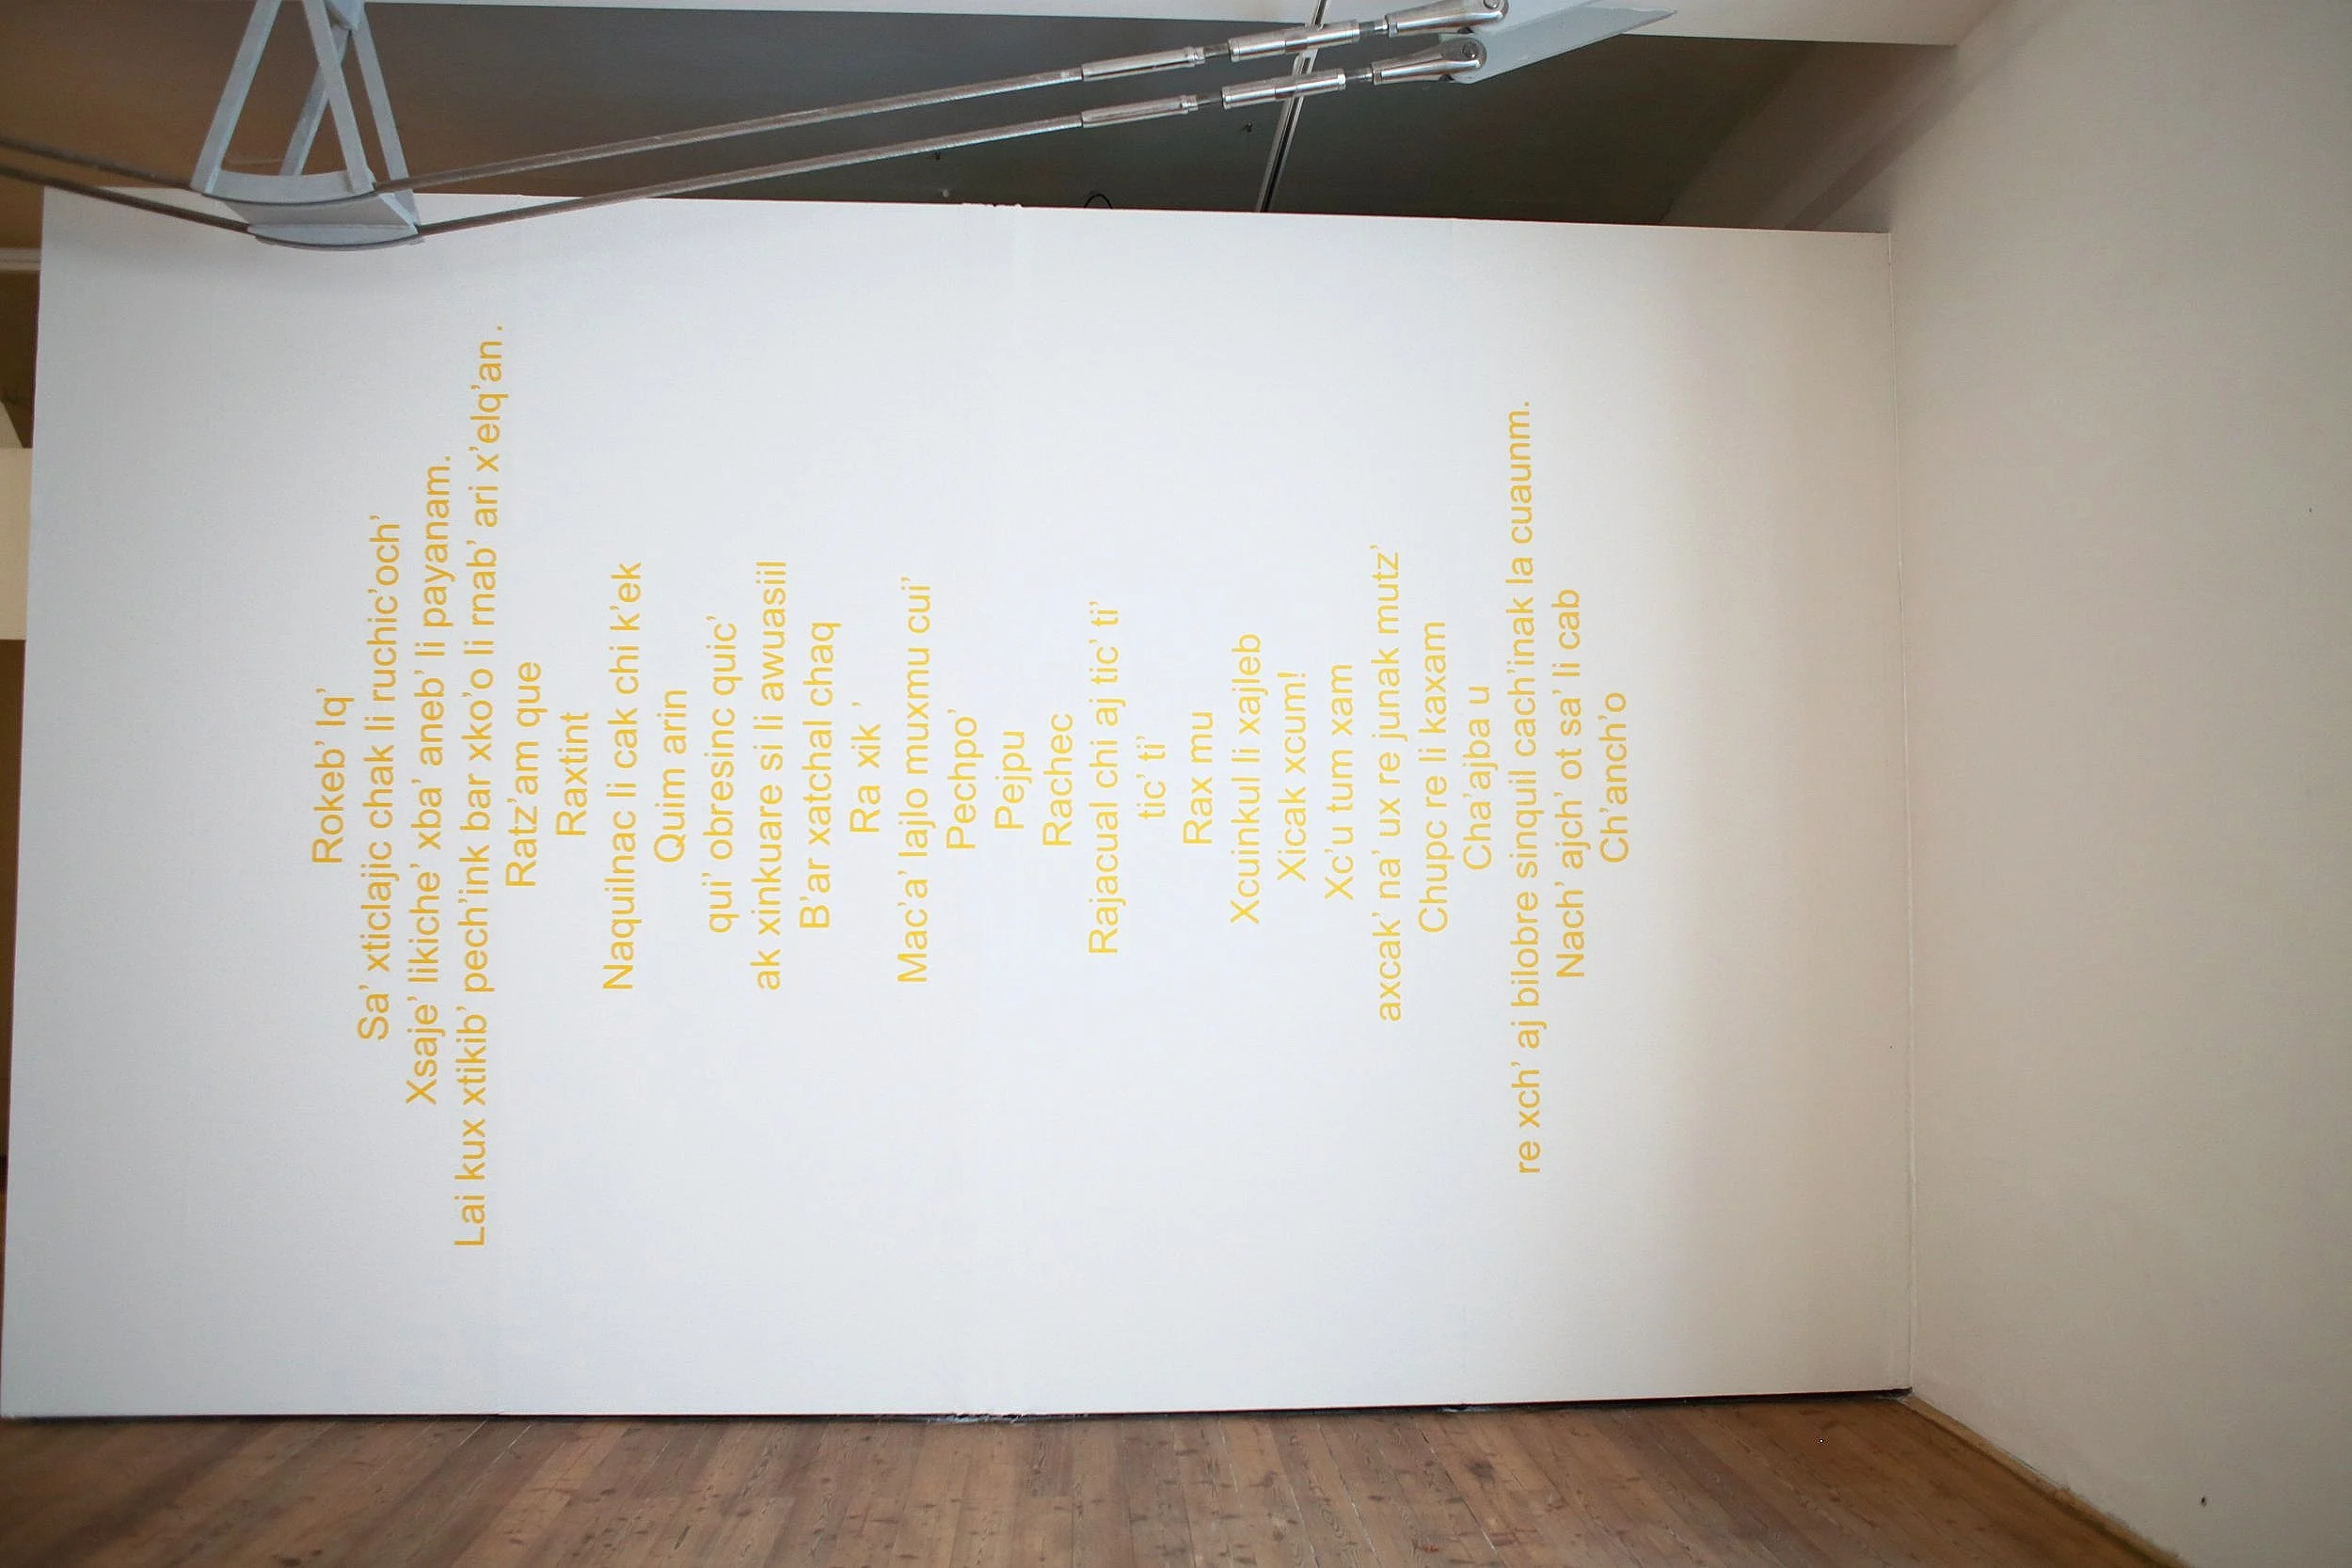 Rokeb’ Iq’
Sa’ xticlajic chak li ruchic’och’
Xsaje’ likiche’ xba’ aneb’ li payanam.
Lai kux xtikib’ pech’ink bar xko’o li rnab’ ari x’elq’an.
Ratz’am que
Raxtint
Naquilnac li cak chi k’ek
Quim arin
qui’ obresinc quic’
ak xinkuare si li awuasiil
B’ar xatchal chaq
Ra xik ’
Mac’a’ lajlo muxmu cui’
Pechpo’
Pejpu
Rachec
Rajacual chi aj tic’ ti’
tic’ ti’
Rax mu
Xcuinkul li xajleb
Xicak xcum!
Xc’u tum xam
axcak’ na’ ux re junak mutz’
Chupc re li kaxam
Cha’ajba u
re xch’ aj bilobre sinquil cach’inak la cuaunm.
Nach’ ajch’ ot sa’ li cab
Ch’anch’o